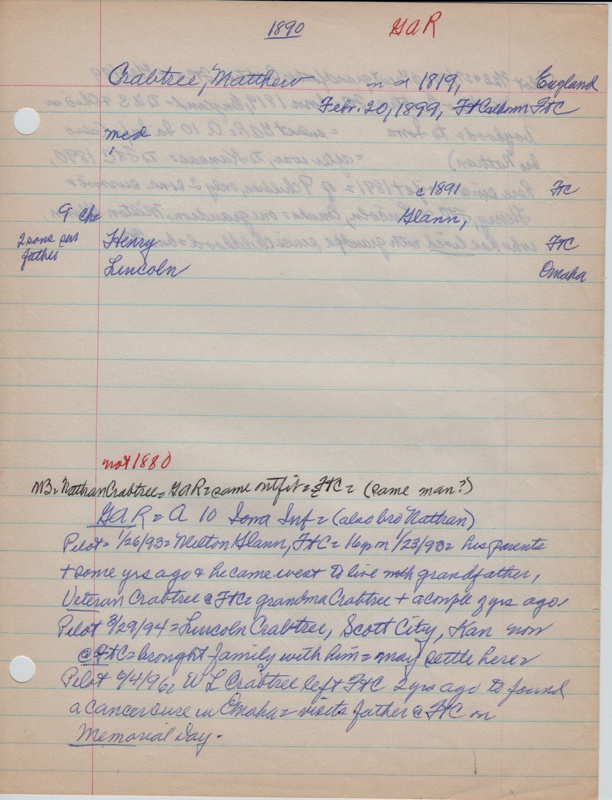 1890 GAR
Crabtree, Matthew 1819, England
Febr. 20, 1899, Ft Calhoun FtC
med
c 1891 FtC
9 ch= Glann,
2 sons per Henry FtC
father Lincoln Omaha
not 1880
NB= Nathan Crabtree= GAR= same outfit= FtC= (same man?)
GAR= A 10 Iowa Inf= (also bro Nathan)
Pilot= 1/26/93= Milton Glann, FtC= 16 pm 1/23/93= his parents
+ some yrs ago & he came west to live with grandfather,
Veteran Crabtree @ FtC= grandma Crabtree + a couple of yrs ago.
Pilot 3/29/94= Lincoln Crabtree, Scott City, Kan now
@ FtC= brought family with him= may settle here=
Pilot 6/4/96, W L Crabtree left FtC 2 yrs ago to found
a cancer cure in Omaha= visits father @ FtC on
Memorial Day.